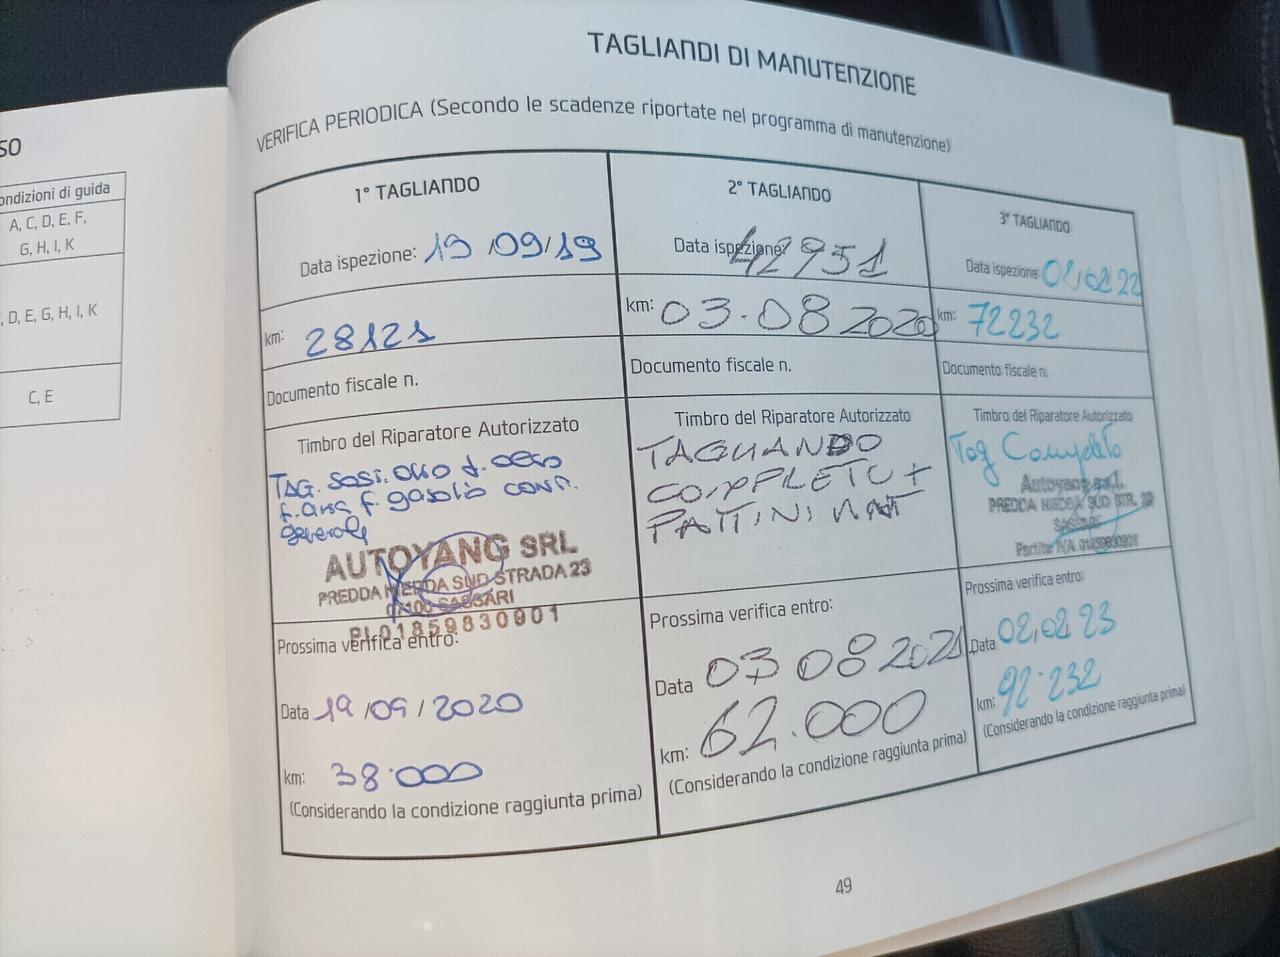 SO
ondizioni di guida
A, C, D, E, F,
G, H, I, K
, D, E, G, H, I, K
C, E
TAGLIANDI DI MANUTENZIONE
VERIFICA PERIODICA (Secondo le scadenze riportate nel programma di manutenzione)
1° TAGLIANDO
Data ispezione: 19/09/19
km: 28121
Documento fiscale n.
Timbro del Riparatore Autorizzato
TAG. sost. olio f. olio
f. aria f. gasolio cont.
generale
AUTOYANG SRL
PREDDA NIEDDA SUD STRADA 23
07100 SASSARI
PI 01859830901
Prossima verifica entro:
Data 19/09/2020
km: 38.000
(Considerando la condizione raggiunta prima)
2° TAGLIANDO
Data ispezione: 42951
km: 03.08 2020
Documento fiscale n.
Timbro del Riparatore Autorizzato
TAGLIANDO
COMPLETO +
PATTINI
Prossima verifica entro:
Data 03 08 2021
km: 62.000
(Considerando la condizione raggiunta prima)
3° TAGLIANDO
Data ispezione: 02,02 22
km: 72232
Documento fiscale n.
Timbro del Riparatore Autorizzato
Tag Completo
Autoyang s.r.l.
PREDDA NIEDDA SUD STR. 23
SASSARI
Partita IVA 01859830901
Prossima verifica entro:
Data 02,02 23
km: 92.232
(Considerando la condizione raggiunta prima)
49